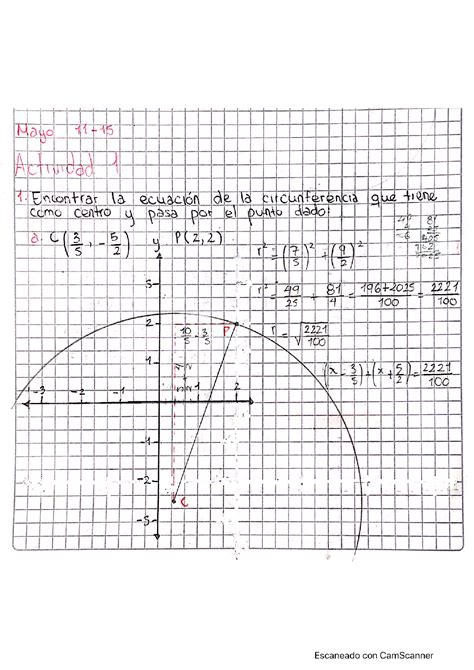 Mayo 11-15
Actividad 1
1. Encontrar la ecuación de la circunferencia que tiene
como centro y pasa por el punto dado:
a. C(3/5, -5/2) y P(2,2)
r² = (7/5)² + (9/2)²
r² = 49/25 + 81/4 = 196+2025/100 = 2221/100
r = √2221/100
(x - 3/5) + (x + 5/2) = 2221/100
10/5 - 3/5
P
C
Escaneado con CamScanner